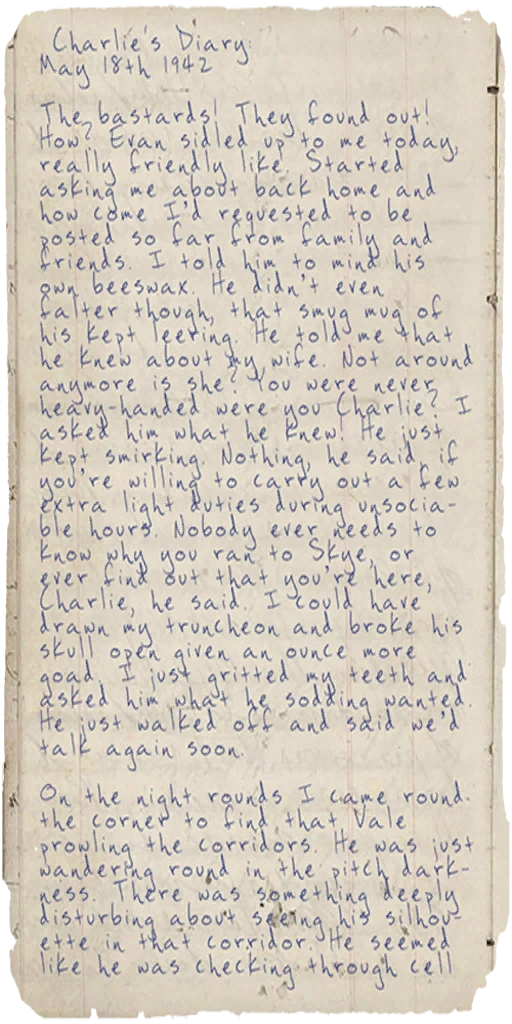 Charlie's Diary.
May 18th 1942
The bastards! They found out!
How? Evan sidled up to me today,
really friendly like. Started
asking me about back home and
how come I'd requested to be
posted so far from family and
friends. I told him to mind his
own beeswax. He didn't even
falter though, that smug mug of
his kept leering. He told me that
he knew about my wife. Not around
anymore is she? You were never
heavy-handed were you Charlie? I
asked him what he knew! He just
kept smirking. Nothing, he said, if
you're willing to carry out a few
extra light duties during unsocia-
ble hours. Nobody ever needs to
know why you ran to Skye, or
ever find out that you're here,
Charlie, he said. I could have
drawn my truncheon and broke his
skull open given an ounce more
goad. I just gritted my teeth and
asked him what he sodding wanted.
He just walked off and said we'd
talk again soon.
On the night rounds I came round.
the corner to find that Vale
prowling the corridors. He was just
wandering round in the pitch dark-
ness. There was something deeply
disturbing about seeing his silhou-
ette in that corridor. He seemed
like he was checking through cell